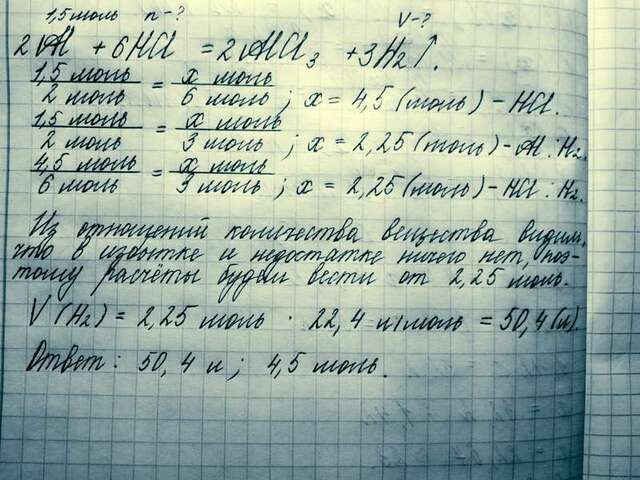 1,5 моль n-? V-?
2Al + 6HCl = 2AlCl₃ + 3H₂↑.
1,5 моль / 2 моль = x моль / 6 моль ; x = 4,5 (моль) - HCl.
1,5 моль / 2 моль = x моль / 3 моль ; x = 2,25 (моль) - Al : H₂.
4,5 моль / 6 моль = x моль / 3 моль ; x = 2,25 (моль) - HCl : H₂.
Из отношений количества вещества видим,
что в избытке и недостатке ничего нет, поэ-
тому расчёты будем вести от 2,25 моль.
V(H₂) = 2,25 моль · 22,4 л/моль = 50,4 (л).
Ответ: 50,4 л; 4,5 моль.